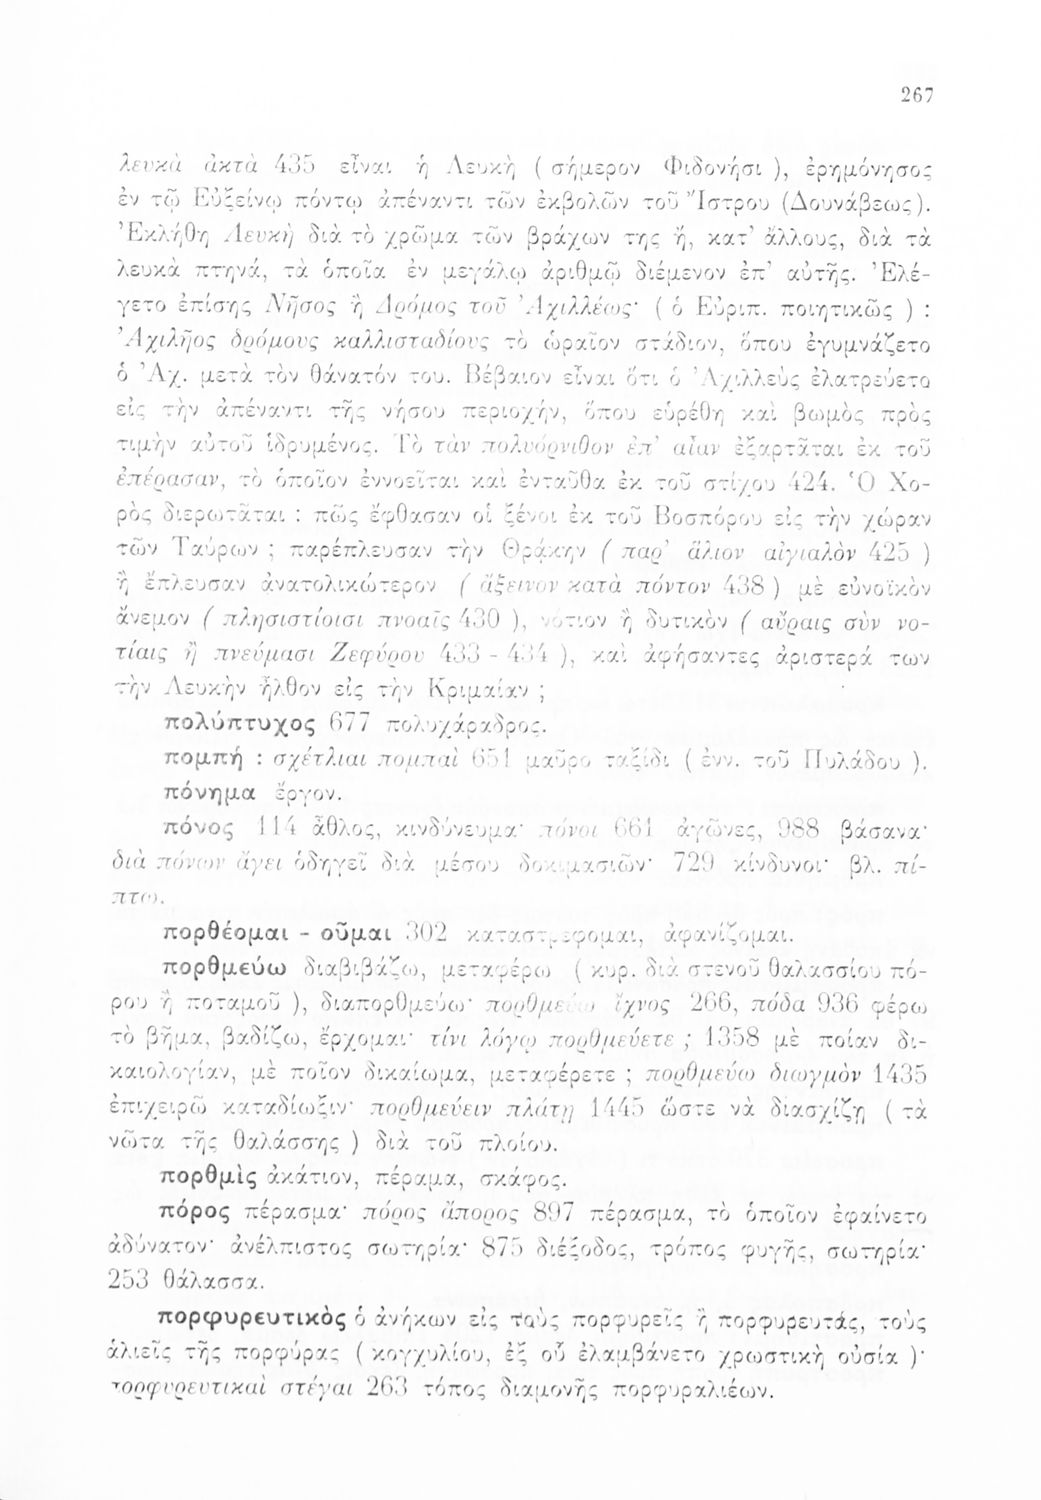 267
λευκὰ ἀκτὰ 435 εἶναι ἡ Λευκὴ ( σήμερον Φιδονήσι ), ἐρημόνησος
ἐν τῷ Εὐξείνῳ πόντῳ ἀπέναντι τῶν ἐκβολῶν τοῦ Ἴστρου (Δουνάβεως).
Ἐκλήθη Λευκὴ διὰ τὸ χρῶμα τῶν βράχων της ἤ, κατ' ἄλλους, διὰ τὰ
λευκὰ πτηνά, τὰ ὁποῖα ἐν μεγάλῳ ἀριθμῷ διέμενον ἐπ' αὐτῆς. Ἐλέ-
γετο ἐπίσης Νῆσος ἢ Δρόμος τοῦ Ἀχιλλέως· ( ὁ Εὐριπ. ποιητικῶς ) :
Ἀχιλῆος δρόμους καλλισταδίους τὸ ὡραῖον στάδιον, ὅπου ἐγυμνάζετο
ὁ Ἀχ. μετὰ τὸν θάνατόν του. Βέβαιον εἶναι ὅτι ὁ Ἀχιλλεὺς ἐλατρεύετο
εἰς τὴν ἀπέναντι τῆς νήσου περιοχήν, ὅπου εὑρέθη καὶ βωμὸς πρὸς
τιμὴν αὐτοῦ ἱδρυμένος. Τὸ τὰν πολυόρνιθον ἐπ' αἶαν ἐξαρτᾶται ἐκ τοῦ
ἐπέρασαν, τὸ ὁποῖον ἐννοεῖται καὶ ἐνταῦθα ἐκ τοῦ στίχου 424. Ὁ Χο-
ρὸς διερωτᾶται : πῶς ἔφθασαν οἱ ξένοι ἐκ τοῦ Βοσπόρου εἰς τὴν χώραν
τῶν Ταύρων ; παρέπλευσαν τὴν Θρᾴκην ( παρ' ἅλιον αἰγιαλὸν 425 )
ἢ ἔπλευσαν ἀνατολικώτερον ( ἄξεινον κατὰ πόντον 438 ) μὲ εὐνοϊκὸν
ἄνεμον ( πλησιστίοισι πνοαῖς 430 ), νότιον ἢ δυτικὸν ( αὔραις σὺν νο-
τίαις ἢ πνεύμασι Ζεφύρου 433 - 434 ), καὶ ἀφήσαντες ἀριστερά των
τὴν Λευκὴν ἦλθον εἰς τὴν Κριμαίαν ;
πολύπτυχος 677 πολυχάραδρος.
πομπή : σχέτλιαι πομπαὶ 651 μαῦρο ταξίδι ( ἐνν. τοῦ Πυλάδου ).
πόνημα ἔργον.
πόνος 114 ἆθλος, κινδύνευμα· πόνοι 661 ἀγῶνες, 988 βάσανα·
διὰ πόνων ἄγει ὁδηγεῖ διὰ μέσου δοκιμασιῶν· 729 κίνδυνοι· βλ. πί-
πτω.
πορθέομαι - οῦμαι 302 καταστρέφομαι, ἀφανίζομαι.
πορθμεύω διαβιβάζω, μεταφέρω ( κυρ. διὰ στενοῦ θαλασσίου πό-
ρου ἢ ποταμοῦ ), διαπορθμεύω· πορθμεύω ἴχνος 266, πόδα 936 φέρω
τὸ βῆμα, βαδίζω, ἔρχομαι· τίνι λόγῳ πορθμεύετε ; 1358 μὲ ποίαν δι-
καιολογίαν, μὲ ποῖον δικαίωμα, μεταφέρετε ; πορθμεύω διωγμὸν 1435
ἐπιχειρῶ καταδίωξιν· πορθμεύειν πλάτῃ 1445 ὥστε νὰ διασχίζῃ ( τὰ
νῶτα τῆς θαλάσσης ) διὰ τοῦ πλοίου.
πορθμὶς ἀκάτιον, πέραμα, σκάφος.
πόρος πέρασμα· πόρος ἄπορος 897 πέρασμα, τὸ ὁποῖον ἐφαίνετο
ἀδύνατον· ἀνέλπιστος σωτηρία· 875 διέξοδος, τρόπος φυγῆς, σωτηρία·
253 θάλασσα.
πορφυρευτικὸς ὁ ἀνήκων εἰς τοὺς πορφυρεῖς ἢ πορφυρευτάς, τοὺς
ἁλιεῖς τῆς πορφύρας ( κογχυλίου, ἐξ οὗ ἐλαμβάνετο χρωστικὴ οὐσία )·
πορφυρευτικαὶ στέγαι 263 τόπος διαμονῆς πορφυραλιέων.